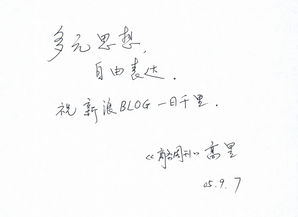 多元思想，
自由表达．
祝新浪BLOG一日千里．
《商务周刊》高里
05.9.7